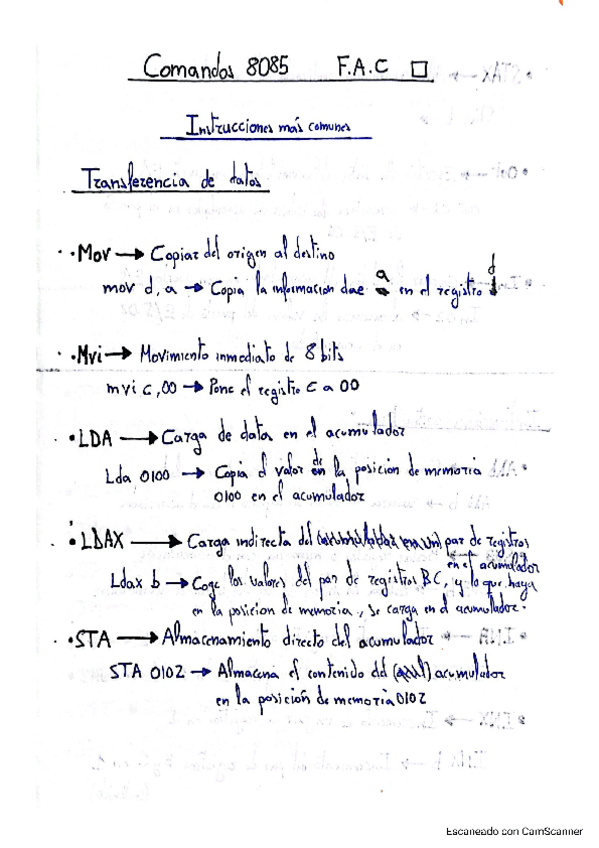 Comandos 8085 F.A.C
Instrucciones más comunes
Transferencia de datos
• Mov → Copiar del origen al destino
mov d, a → Copia la informacion dae a en el registro d
• Mvi → Movimiento inmediato de 8 bits
mvi c,00 → Pone el registro C a 00
• LDA → Carga de datos en el acumulador
Lda 0100 → Copia el valor de en la posicion de memoria
0100 en el acumulador
• LDAX → Carga indirecta del par de registros
en el acumulador
Ldax b → Coge los valores del par de registros BC, y lo que haya
en la posicion de memoria, se carga en el acumulador.
• STA → Almacenamiento directo del acumulador
STA 0102 → Almacena el contenido del acumulador
en la posición de memoria 0102
Escaneado con CamScanner